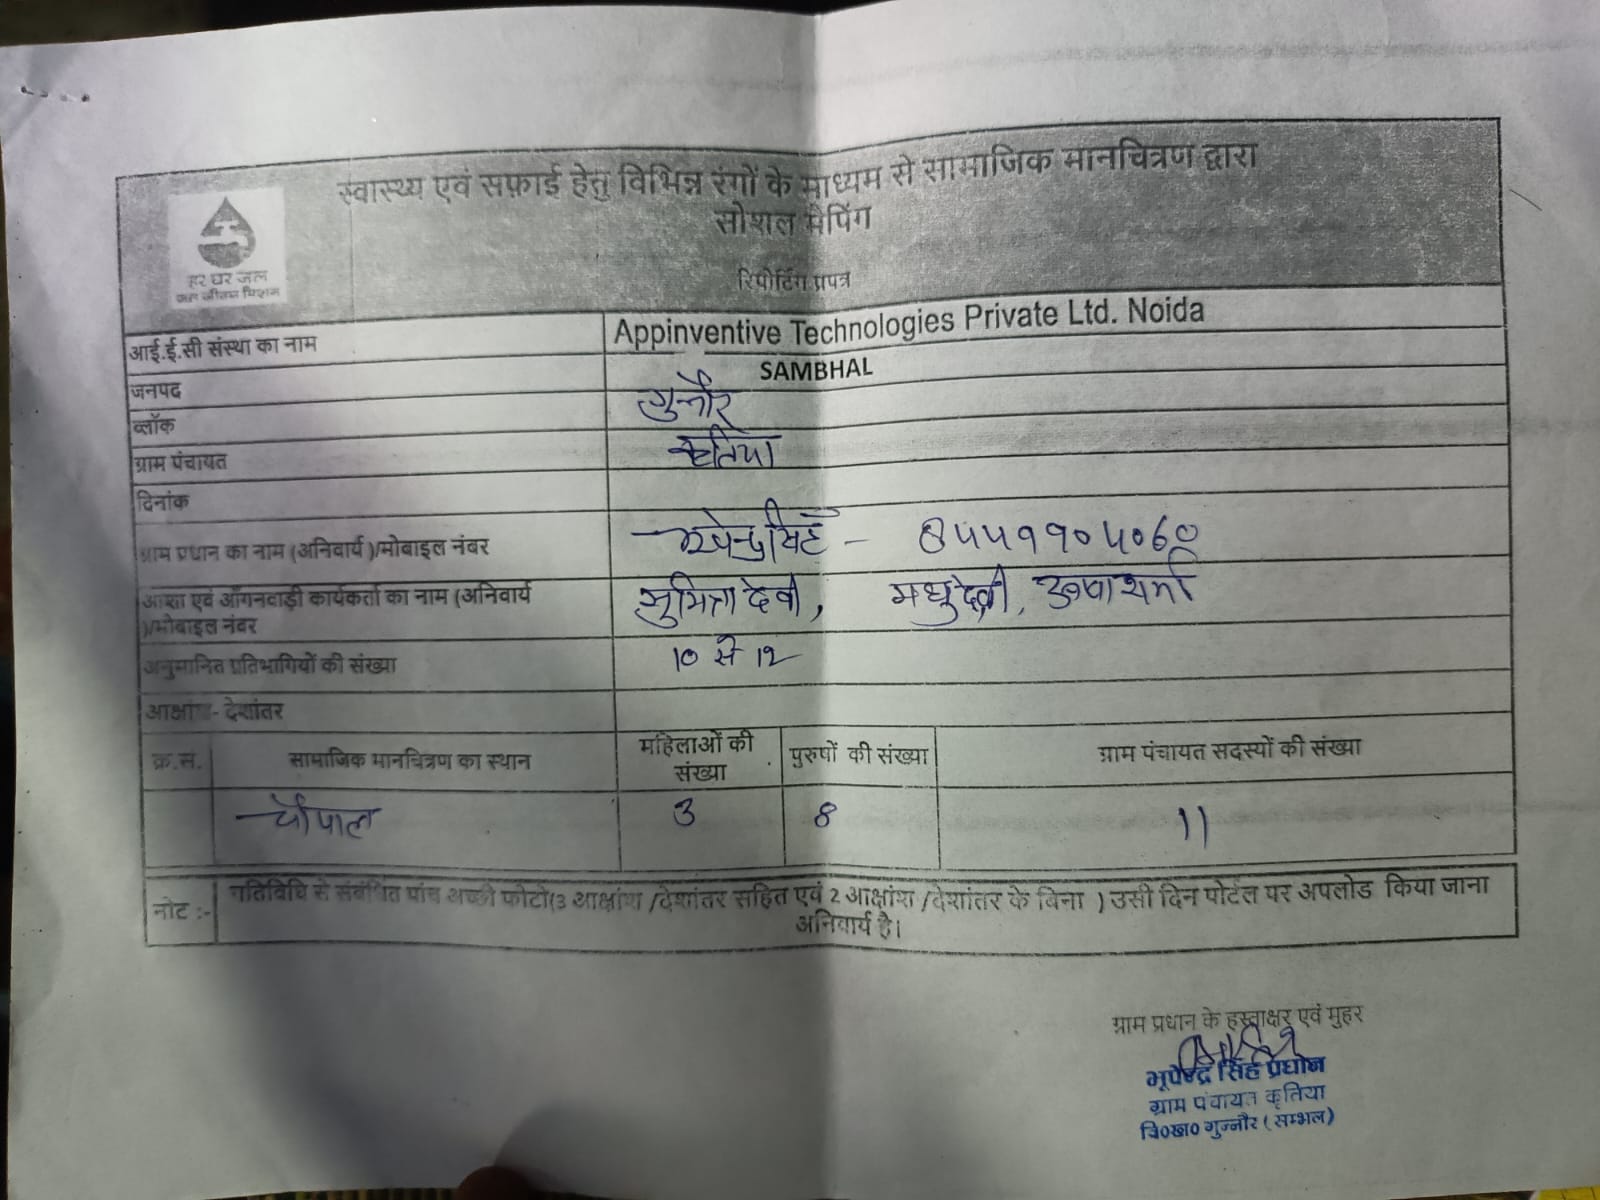 स्वास्थ्य एवं सफ़ाई हेतु विभिन्न रंगों के माध्यम से सामाजिक मानचित्रण द्वारा
सोशल मैपिंग
रिपोर्टिंग प्रपत्र
हर घर जल
जल जीवन मिशन
आई.ई.सी संस्था का नाम Appinventive Technologies Private Ltd. Noida
जनपद SAMBHAL
ब्लॉक गुन्नौर
ग्राम पंचायत कृतिया
दिनांक
ग्राम प्रधान का नाम (अनिवार्य )/मोबाइल नंबर भूपेन्द्र सिंह -
आशा एवं आँगनवाड़ी कार्यकर्ता का नाम (अनिवार्य सुमित्रा देवी, मधु देवी, ऊषा शर्मा
)/मोबाइल नंबर
अनुमानित प्रतिभागियों की संख्या 10 से 12
आक्षांश- देशांतर
क्र.स. सामाजिक मानचित्रण का स्थान महिलाओं की संख्या पुरुषों की संख्या ग्राम पंचायत सदस्यों की संख्या
चौपाल 3 8 11
नोट :- गतिविधि से संबंधित पांच अच्छी फोटो(3 आक्षांश /देशांतर सहित एवं 2 आक्षांश /देशांतर के बिना ) उसी दिन पोर्टल पर अपलोड किया जाना
अनिवार्य है।
ग्राम प्रधान के हस्ताक्षर एवं मुहर
भूपेन्द्र सिंह प्रधान
ग्राम पंचायत कृतिया
वि०ख० गुन्नौर ( सम्भल)